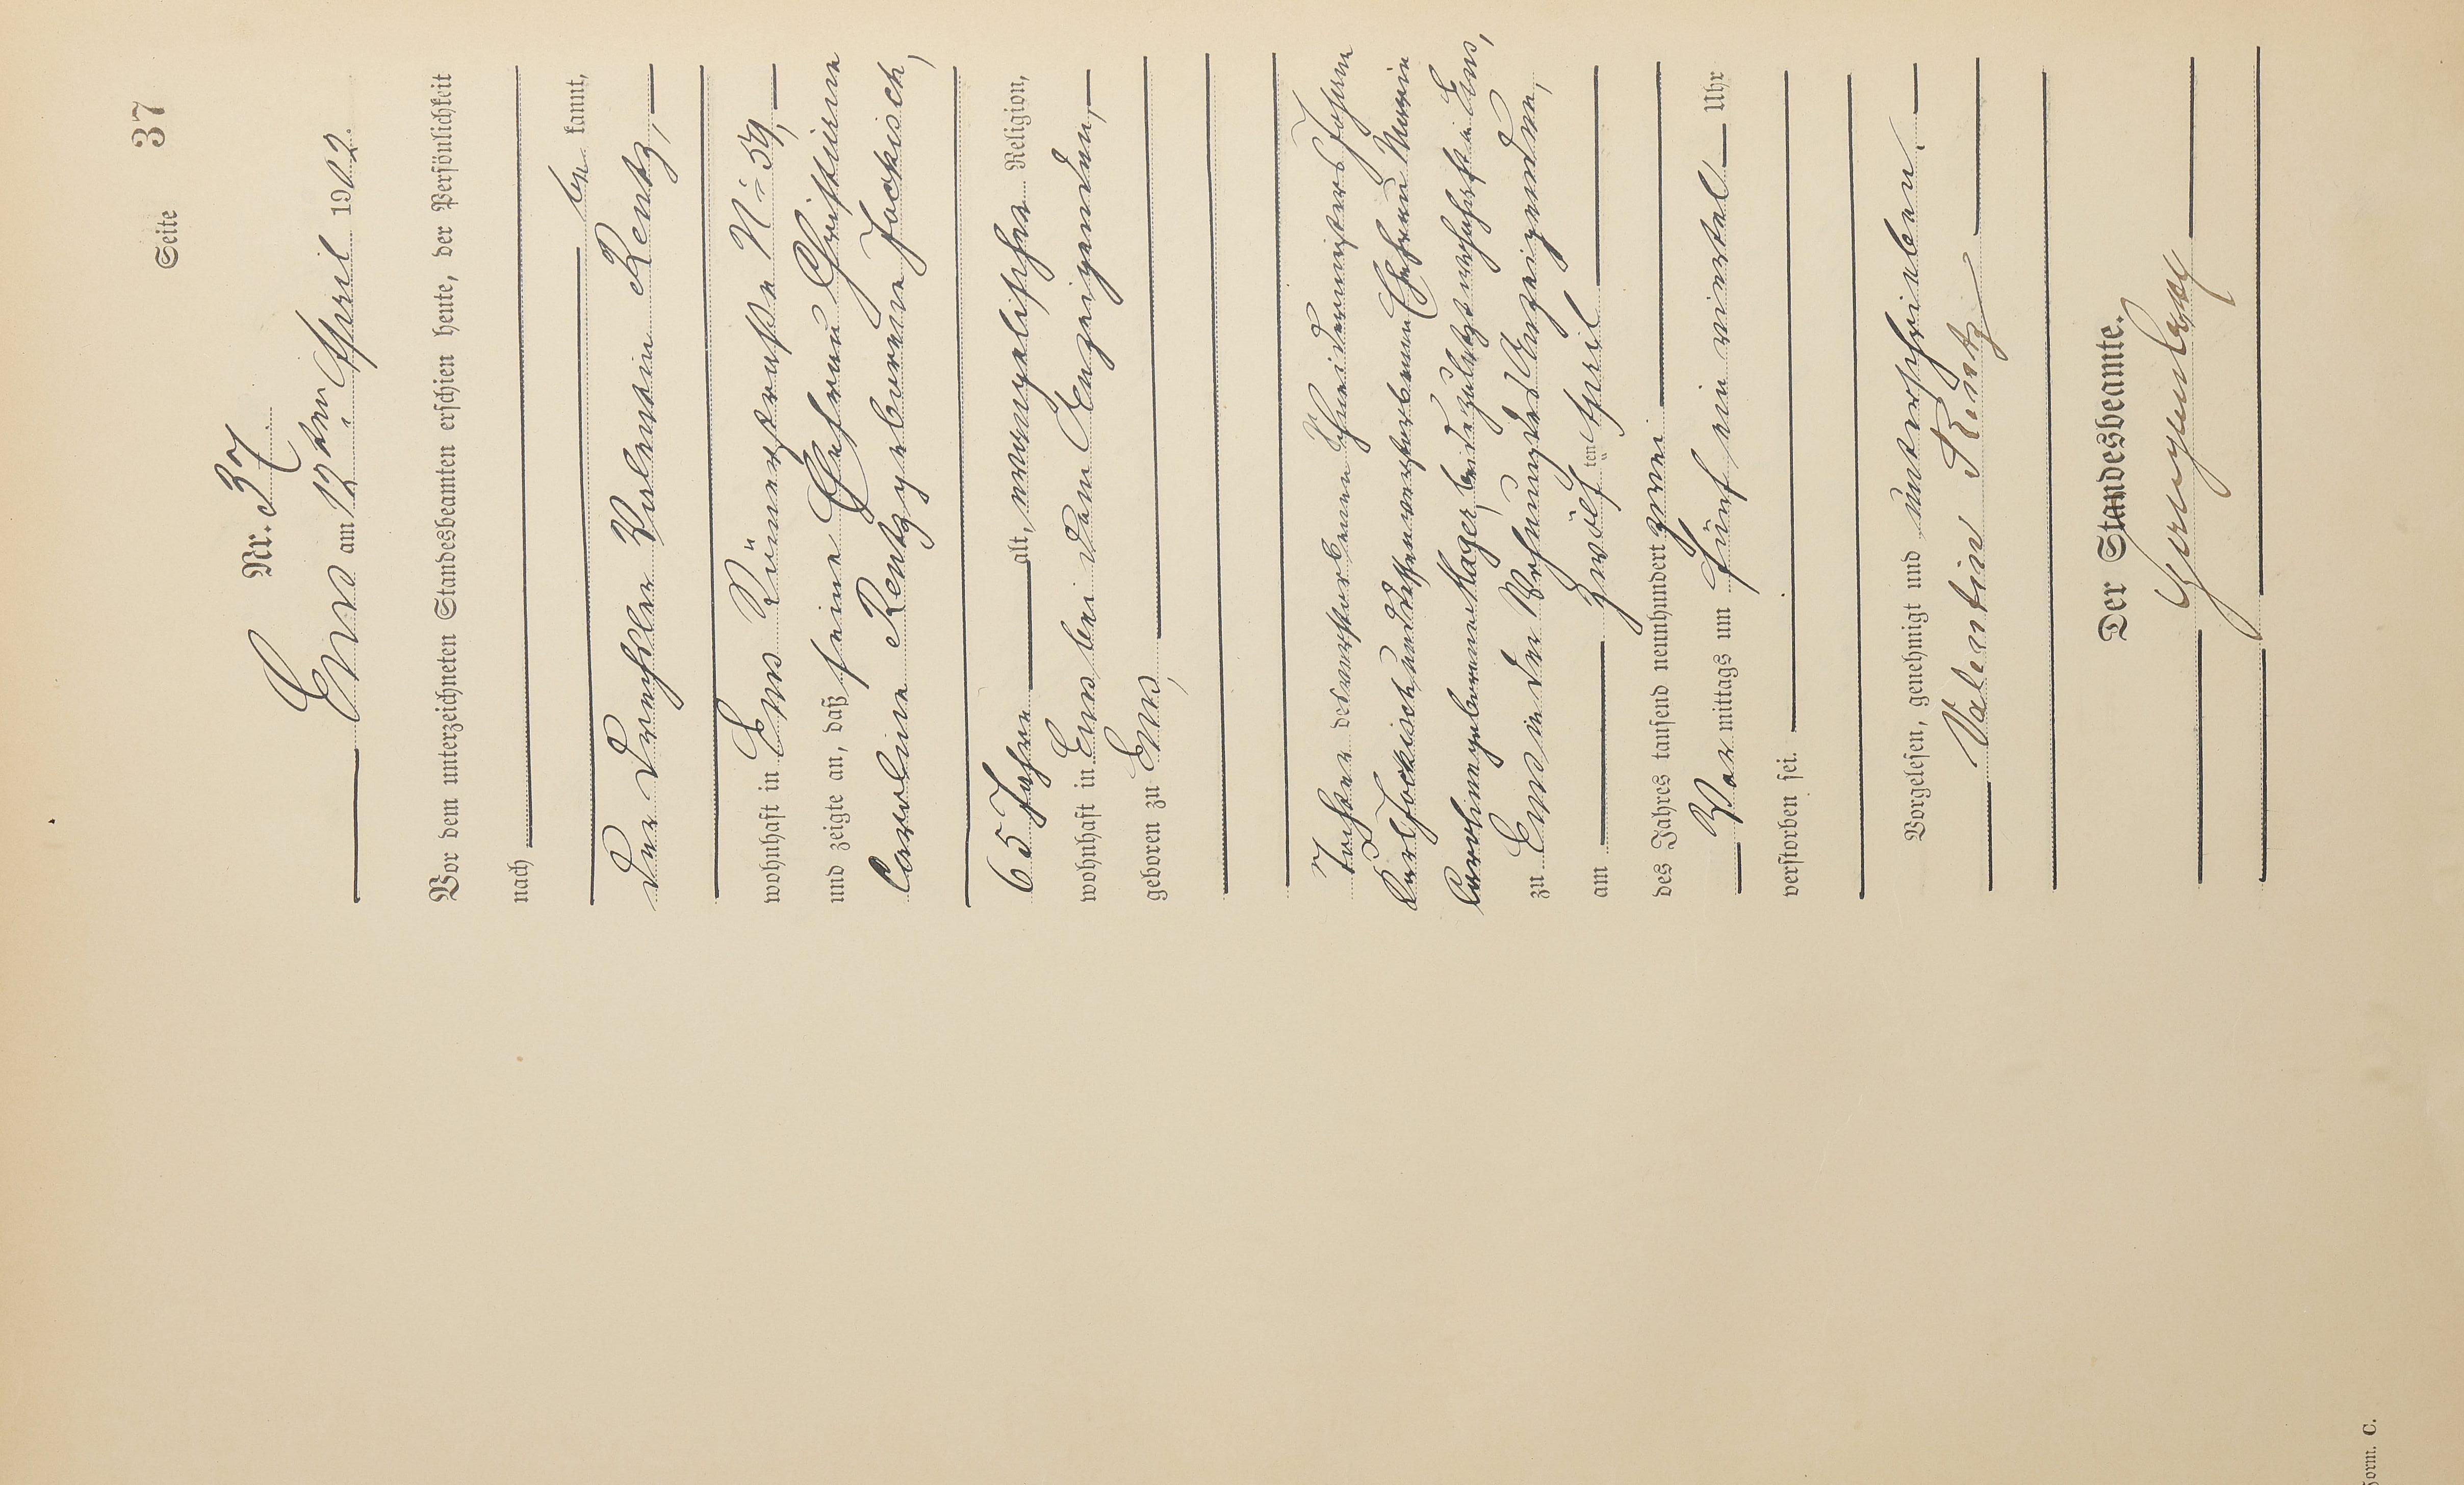 Seite 37
Nr. 37
Ems am 12ten April 1902.
Vor dem unterzeichneten Standesbeamten erschien heute, der Persönlichkeit
nach
be kannt,
der Drechsler Valentin Rentz,
wohnhaft in Ems Römerstraße No 59,
und zeigte an, daß seine Ehefrau Christiane
Caroline Rentz geborene Jockisch,
65 Jahre alt, evangelischer Religion,
wohnhaft in Ems bei dem Anzeigenden,
geboren zu Ems,
Tochter des verstorbenen Schneidermeisters Johann
Karl Jockisch und dessen verstorbenen Ehefrau Marie
Caroline geborene Hager, beide zuletzt wohnhaft in Ems,
zu Ems in der Wohnung des Anzeigenden,
am zwölf ten April
des Jahres tausend neunhundert zwei
Vor mittags um fünf ein viertel Uhr
verstorben sei.
Vorgelesen, genehmigt und unterschrieben.
Valentin Rentz
Der Standesbeamte.
Form. C.